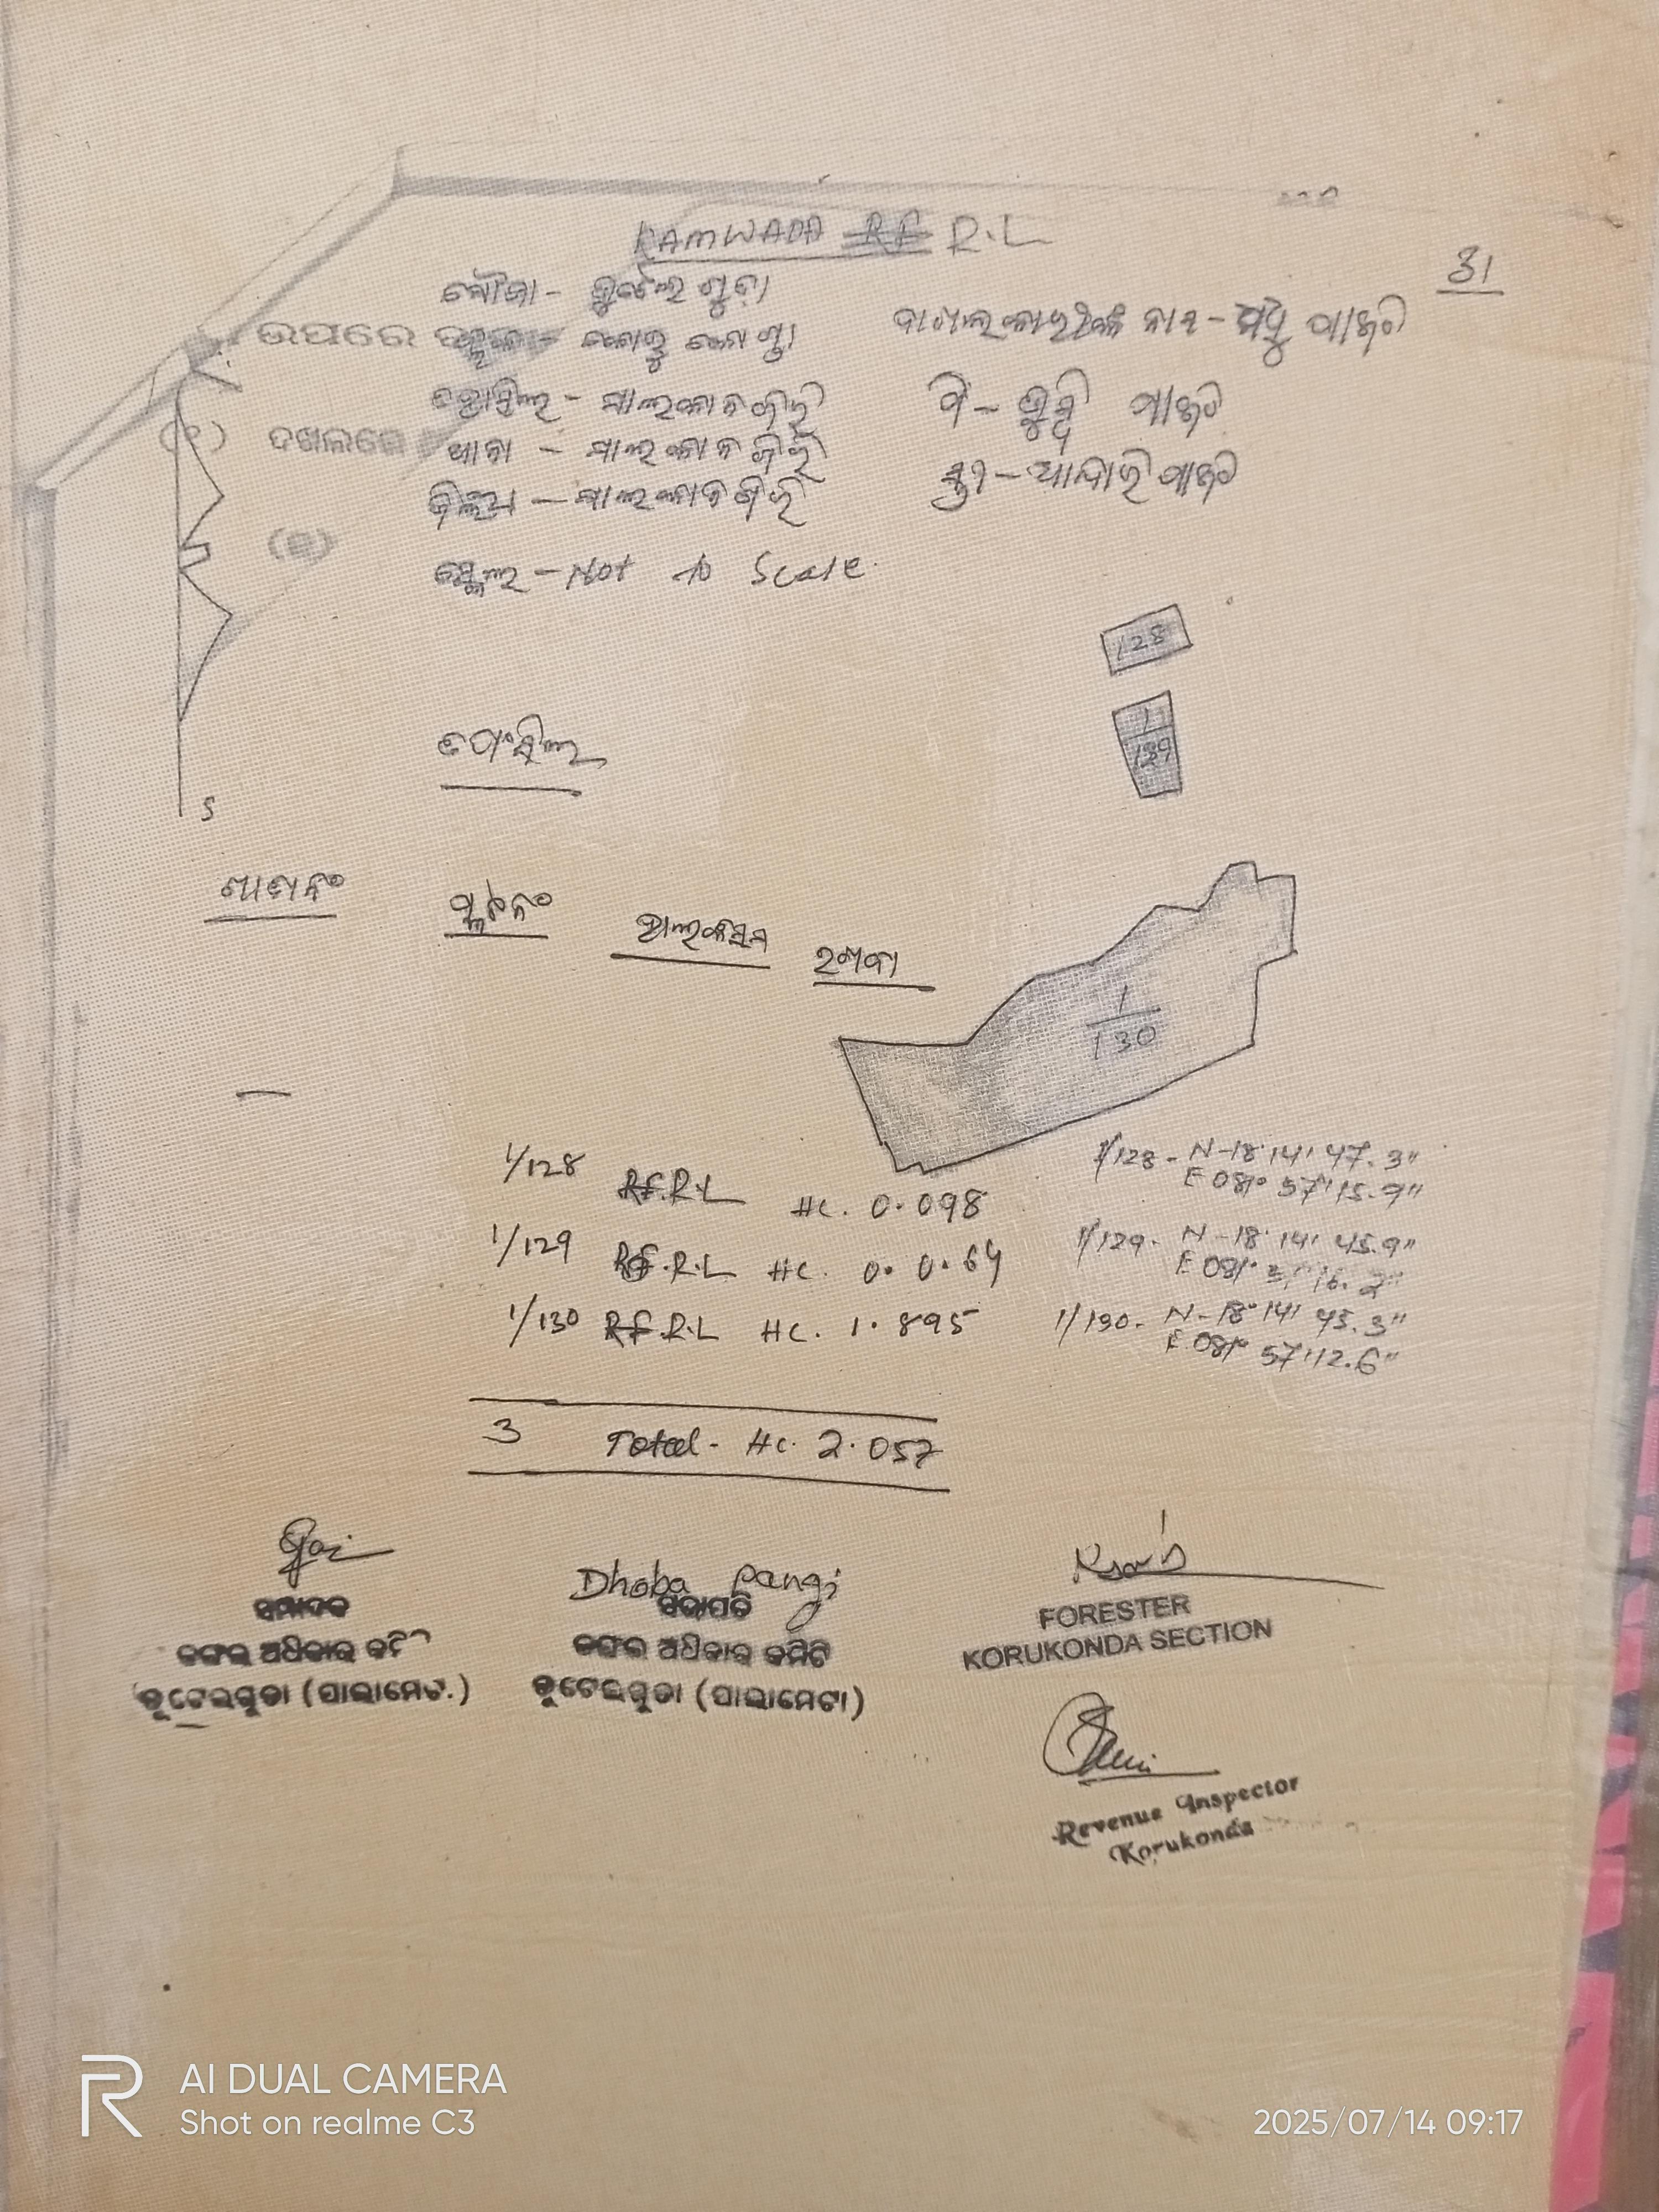 KAMWADA RF R.L
31
ମୌଜା - ଗୁଣ୍ଠେଲ ଗୁଡ଼ା
ଉପରେ
କୋରୁକୋଣ୍ଡା
ନାମ - ମଧୁ ପାଙ୍ଗି
ତହସିଲ - ମାଲକାନଗିରି
ପି - ଗୁନ୍ଧି ପାଙ୍ଗି
(୧) ଦଖଲରେ
ଥାନା - ମାଲକାନଗିରି
ଜିଲ୍ଲା - ମାଲକାନଗିରି
ପାଙ୍ଗି
ସ୍କେଲ - Not to Scale.
128
1
129
S
ଖାତା ନଂ
ପ୍ଲଟ ନଂ
ରକବା
1
130
—
1/128 RF.R.L HC. 0.098
1/128 - N-18°14' 47.3"
E 081° 57' 15.9"
1/129 RF.R.L HC. 0.0.64
1/129 - N-18°14' 45.9"
1/130 RF.R.L HC. 1.895
1/130 - N-18°14' 45.3"
E 081° 57' 12.6"
3 Total - HC. 2.057
Dhoba Pangi
ସମ୍ପାଦକ
ସଭାପତି
FORESTER
KORUKONDA SECTION
ଜଙ୍ଗଲ ଅଧିକାର
ଜଙ୍ଗଲ ଅଧିକାର କମିଟି
(ପାଲାମେଟା)
Revenue Inspector
Korukonda
AI DUAL CAMERA
Shot on realme C3
2025/07/14 09:17